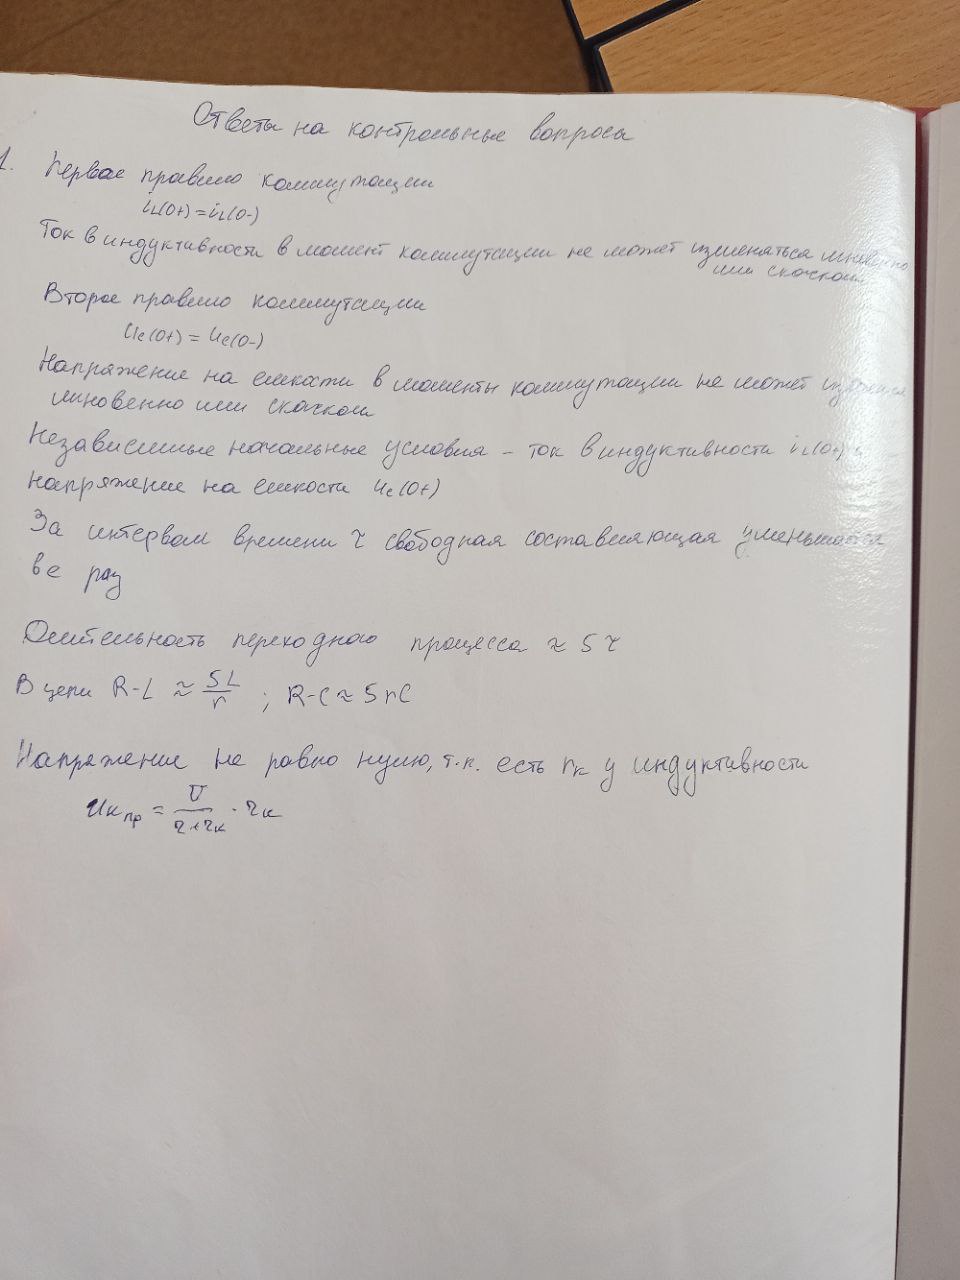 Ответы на контрольные вопросы
1. Первое правило коммутации
iL(0+) = iL(0-)
Ток в индуктивности в момент коммутации не может изменяться мгновенно
или скачком
Второе правило коммутации
uc(0+) = uc(0-)
Напряжение на емкости в моменты коммутации не может
мгновенно или скачком
Независимые начальные условия – ток в индуктивности iL(0+) и
напряжение на емкости uc(0+)
За интервал времени τ свободная составляющая уменьшается
в e раз
Длительность переходного процесса ≈ 5τ
В цепи R-L ≈ 5L/r ; R-C ≈ 5rC
Напряжение не равно нулю, т.к. есть rк у индуктивности
uк пр = U/(r+rк) · rк